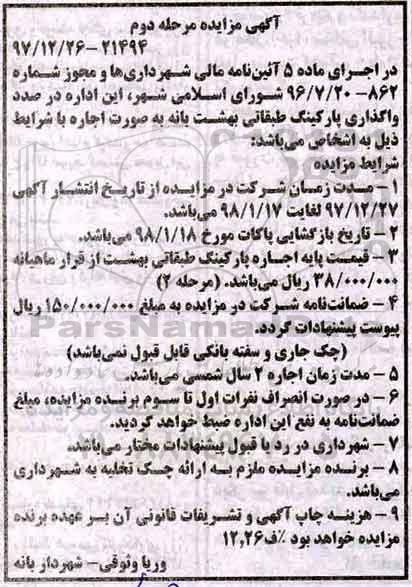 آگهی مزایده مرحله دوم
۹۷/۱۲/۲۶-۲۱۴۹۴
در اجرای ماده ۵ آئین‌نامه مالی شهرداری‌ها و مجوز شماره
۸۶۲- ۹۶/۷/۲۰ شورای اسلامی شهر، این اداره در صدد
واگذاری پارکینگ طبقاتی بهشت بانه به صورت اجاره با شرایط
ذیل به اشخاص می‌باشد:
شرایط مزایده
۱- مدت زمان شرکت در مزایده از تاریخ انتشار آگهی
۹۷/۱۲/۲۷ لغایت ۹۸/۱/۱۷ می‌باشد.
۲- تاریخ بازگشایی پاکات مورخ ۹۸/۱/۱۸ می‌باشد.
۳- قیمت پایه اجاره پارکینگ طبقاتی بهشت از قرار ماهیانه
۳۸/۰۰۰/۰۰۰ ریال می‌باشد. (مرحله ۲)
۴- ضمانت‌نامه شرکت در مزایده به مبلغ ۱۵۰/۰۰۰/۰۰۰ ریال
پیوست پیشنهادات گردد.
(چک جاری و سفته بانکی قابل قبول نمی‌باشد)
۵- مدت زمان اجاره ۲ سال شمسی می‌باشد.
۶- در صورت انصراف نفرات اول تا سوم برنده مزایده، مبلغ
ضمانت‌نامه به نفع این اداره ضبط خواهد گردید.
۷- شهرداری در رد یا قبول پیشنهادات مختار می‌باشد.
۸- برنده مزایده ملزم به ارائه چک تخلیه به شهرداری
می‌باشد.
۹- هزینه چاپ آگهی و تشریفات قانونی آن بر عهده برنده
مزایده خواهد بود ٪ف۱۲,۲۶
وریا وثوقی- شهردار بانه
ParsNama